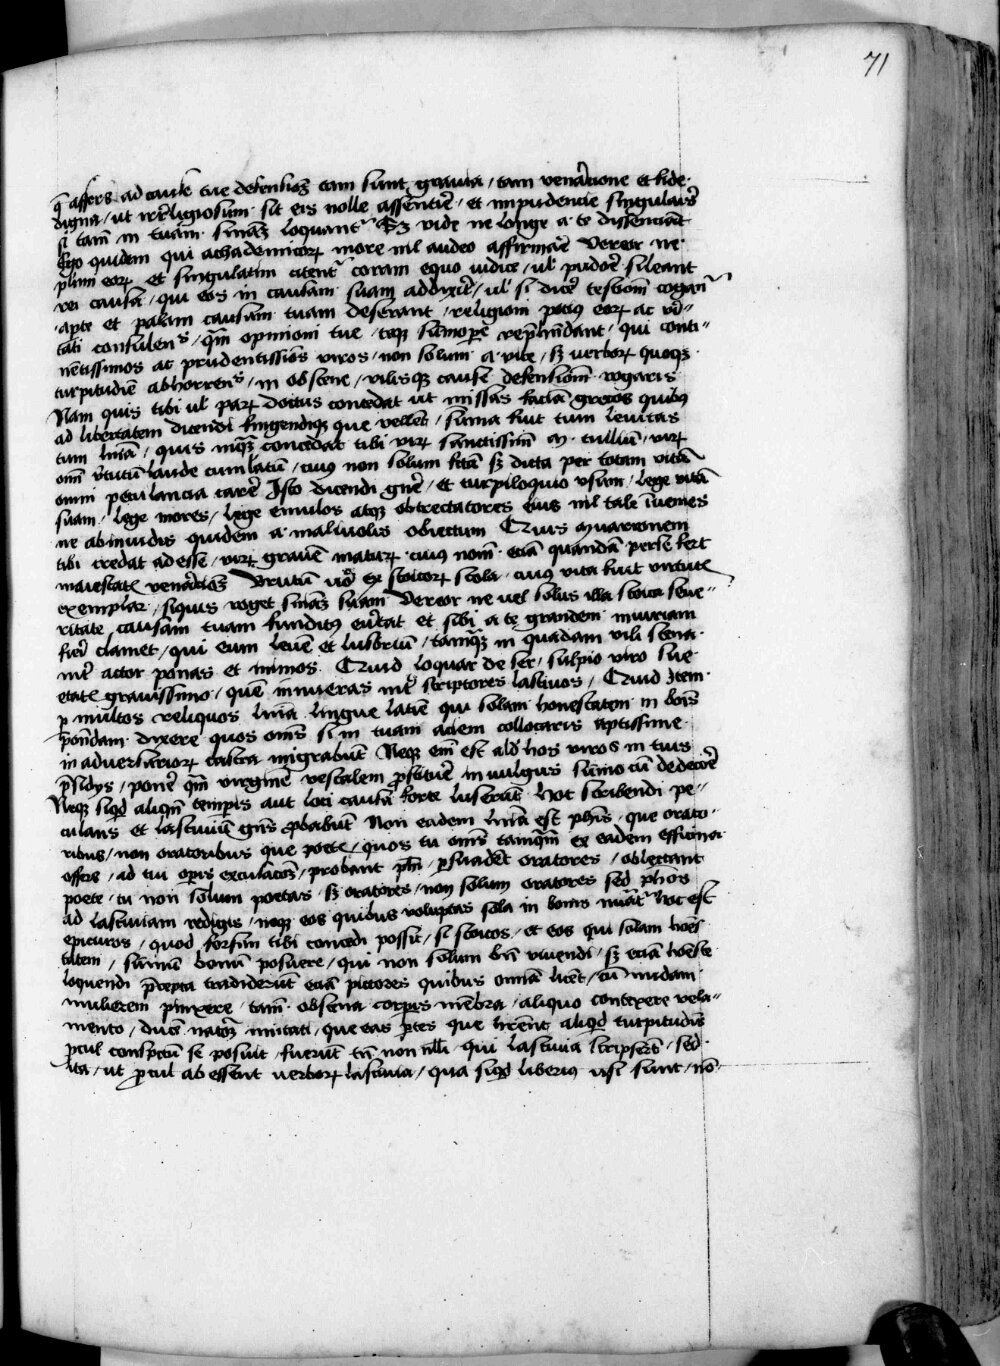 71
q̄ affers ad cause tue defensionē tam sunt gravia / tam venātione et fide
digna / ut irr̄ligiosum sit eis nolle assentirē / et impudencie singularis
si tam̄ in tuam sn̄iaꝫ loquantᷣ Sꝫ vide ne longe a te dissenciāt
Ego quidem qui achademicoꝝ more nil audeo affirmār̄ vereor ne
plim̄ eoꝝ et singulatim citentᷣ coram equo iudice / ul' pudor̄e sileant
vel causā / qui eos in causam suam addixit̄ / ul' si dicer̄ testiōm̄ cogan̄ᷣ
apte et palam causam tuam deserant / religioni pociꝰ eoꝝ ac v̄i-
tati consulen̄s / qm̄ opinioni tue / teqꝫ sūmoper̄e rep̄hēndant / qui conti-
nētissimos ac prudentissimōs viros / non solum a vite / sꝫ verboꝝ quoqꝫ
turpitudīe abhorren̄s / in obscene / vilisqꝫ cause defensionem̄ vogaris
Nam quis tibi ul' paꝝ doctus concedat ut missas faciā grecos quibꝰ
ad libertatem dicendi fingendiqꝫ que vellēt / sūma fuit tum levitas
tum lnīa / quis inqꝫ concedat tibi viꝝ sanctissimū m̄ tulliū / viꝝ
omī v̄tutū laude cumlatū / cuiꝰ non solum fctā sꝫ dicta per totam vitā
omni petulancia carēr̄ Isto dicendi gn̄er̄ / et turpiloquio usum / lege vitā
suam / lege mores / lege emulos atqꝫ obtrectatores eius nil tale īuenies
ne ab invidis quidem a malivolis obiectum Quis mꝰ varronem
tibi credat ad esse / viꝝ gravē maturꝝ cuiꝰ nom̄ eciā quandā perse fert
maiestatē veneraciōꝫ Brutū uͦo ex stoicoꝝ scola / cuiꝰ vita fuit virtutū
exemplar / siquis roget sn̄iaꝫ suam vereor ne vel solus illa stoica seve-
ritate causam tuam funditꝰ ev̄tat et sibi a te grandem iniuriam
fieri clamet / qui eum levē et lubricū / tamqꝫ in quadam vili scena
int̄ actor ponas et mimos Quid loquar de ser / sulpio viro sue
etatē gravissimo / quē innueras int̄ scriptores lascivos / Quid Item
p multos reliquos lnīa lingue latine qui solam honestatem in bōis
pōnēdam dixere quos omēs si in tuam aciem collocaris aptissime
in adversarioꝝ castra migrabūt Neqꝫ em̄ est ald̄ hos viros in tuis
p̄sidys / ponēr̄ qm̄ virginē vestalem p̄stituer̄ in vulgus sūmo cū dedecorē
Neqꝫ siqd̄ aliqm̄ tempis aut loci causa forte luserūt hoc scribendi pe-
culans et lasciviū gn̄s p̄babūt Non eadem lnīa est phīs / que orato-
ribus / non oratoribus que poete / quos tu omēs tamqm̄ ex eadem efficina
offers / ad tui op̄is exculacōꝫ / probant phī / p̄suadēt oratores / oblectant
poete / tu non solum poetas sꝫ oratores / non solum oratores sed phōs
ad lasciviam redigis / neqꝫ eos quibus voluptas sola in bonis nūatᷣ hoc est
epicuros / quod forsan tibi concedi possit / si stoicos / et eos qui solam hoēs
tatem / sūmū bonū posuere / qui non solum bn̄ vivendi / sꝫ eciā hōeste
loquendi p̄cepta tradiderūt eciā pictores quibus omnia licēt / cū nudam
mulierem pinxere / tam̄ obscena corpis mēbra / aliquo contexere vela-
mento / ducē natuꝫ imitati / que eas p̄tes que hrēnt aliqd̄ turpitudīs
p̄cul conspectū se posuit / fuerūt tn̄ non nlli qui lasciva scripserūt / sed
ita / ut p̄cul ab essent verboꝝ lascivia / qua siqd̄ liberiꝰ usi sunt / nō